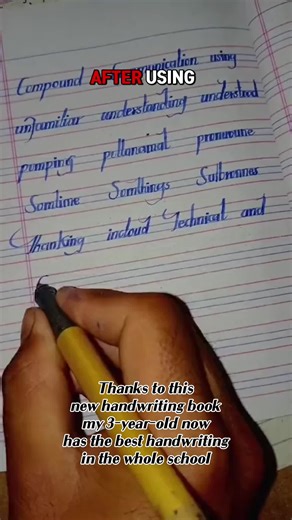 Compound Communication using
AFTER USING
unfamiliar understanding understood
pomping pollanamal pronuoune
Somtime Somthings Suibronnes
Thanking incloud Technical and
Thanks to this
new handwriting book
my 3-year-old now
has the best handwriting
in the whole school